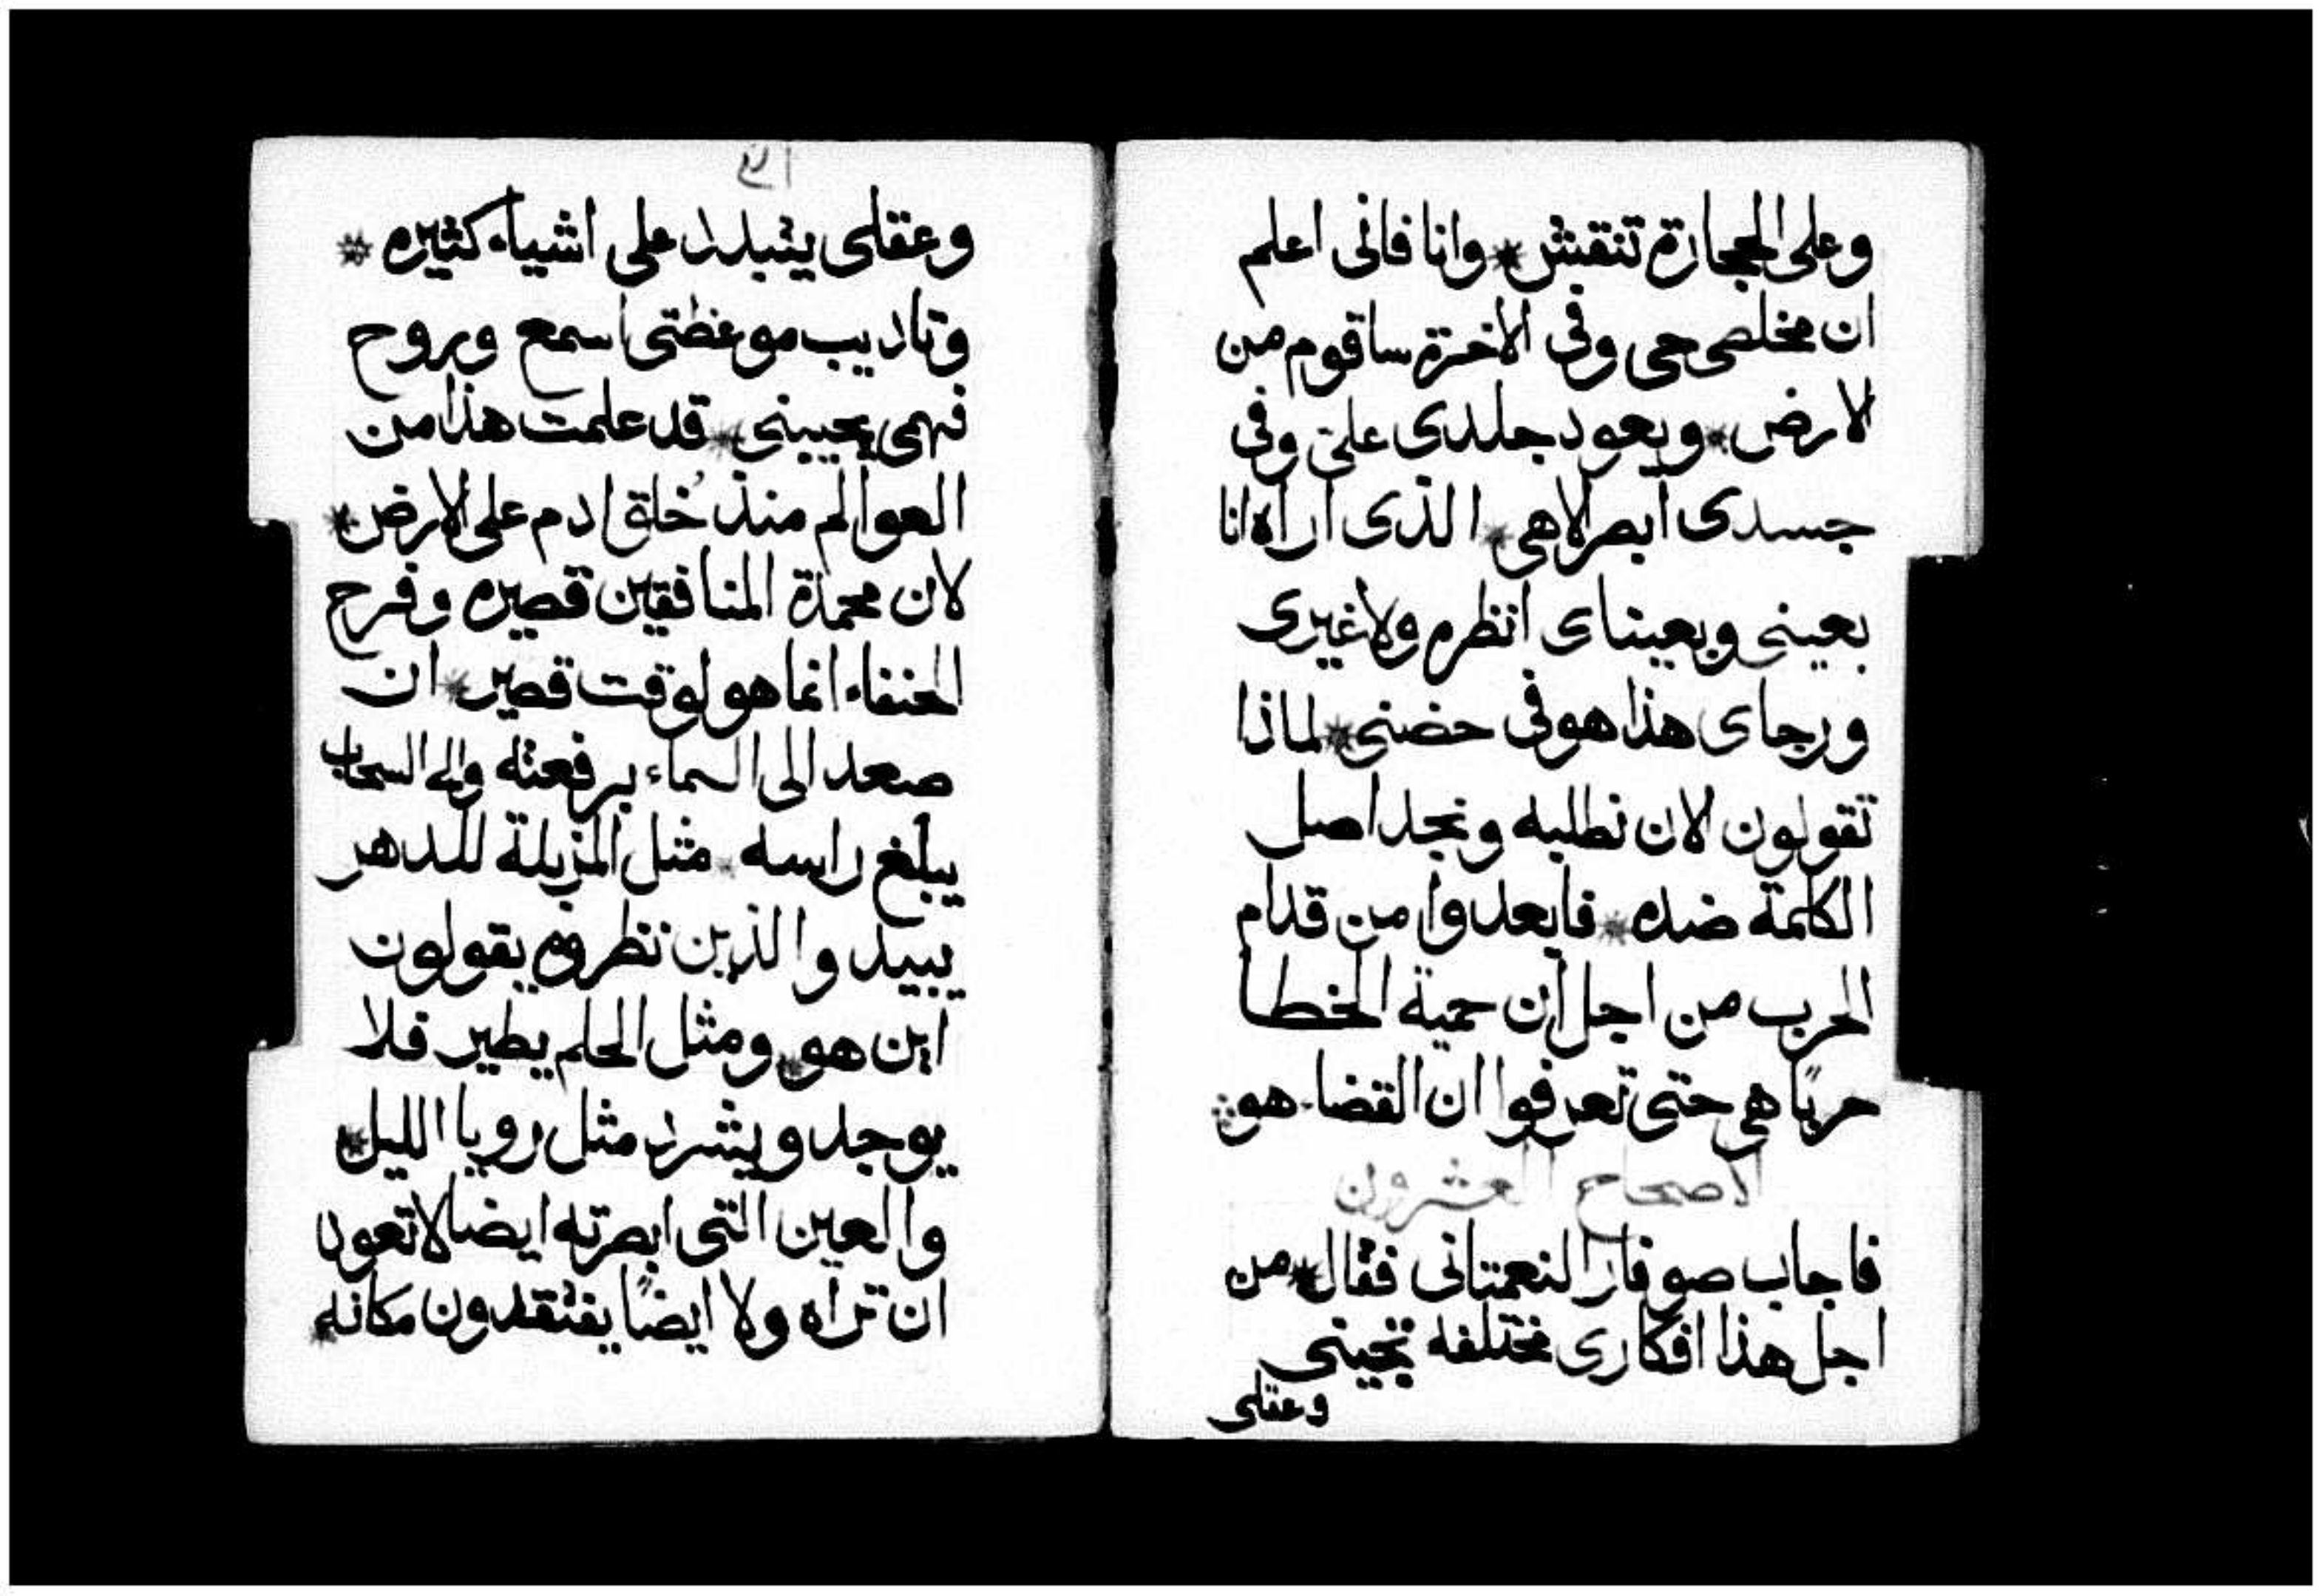 وعلى الحجارة تنقش * وانا فانى اعلم
ان مخلصى حى وفى الاخرة ساقوم من
الارض * ويعود جلدى علىّ وفى
جسدى ابصر الاهى * الذى اراه انا
بعينى وبعيناى انظره ولا غيرى
ورجاى هذا هو فى حضنى * لماذا
تقولون الان نطلبه ونجد اصل
الكلمة ضده * فابعدوا من قدام
الحرب من اجل ان حمية الخطا
حربًا هى حتى تعرفوا ان القضا هو
الاصحاح العشرون
فاجاب صوفار النعمتانى فقال * من
اجل هذا افكارى مختلفه تجينى
وعقلى
وعقلى يتبدد على اشياء كثيره *
وتاديب موعظتى اسمع وبروح
فهمى يجيبنى * قد علمت هذا من
العوالم منذ خلق ادم على الارض *
لان محمدة المنافقين قصيره وفرح
الحنفاء انما هو لوقت قصير * ان
صعد الى السماء برفعته والى السحاب
يبلغ راسه * مثل المزبلة للدهر
يبيد والذين نظروه يقولون
اين هو * ومثل الحلم يطير فلا
يوجد ويشرد مثل رويا الليل *
والعين التى ابصرته ايضا لا تعود
ان تراه ولا ايضًا يفتقدون مكانه *